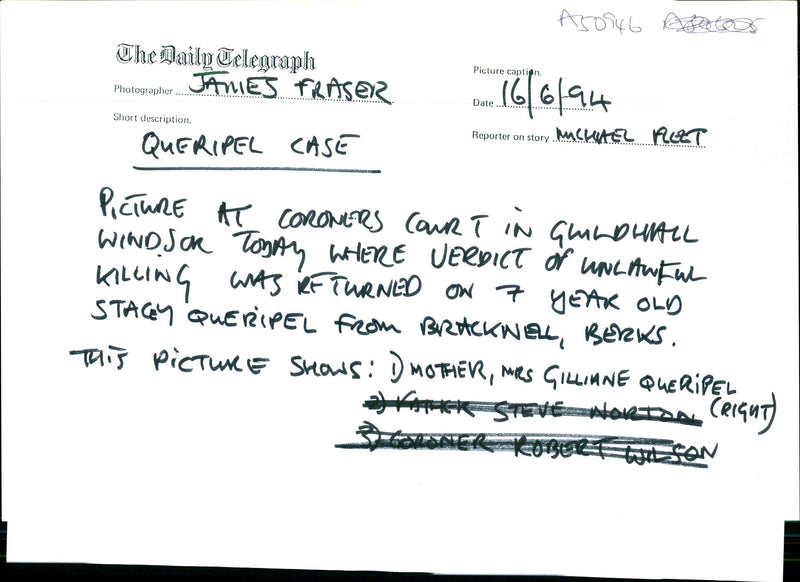 A50946
The Daily Telegraph
Picture caption.
Photographer JAMES FRASER
Date 16/6/94
Short description.
Reporter on story MICHAEL FLEET
QUERIPEL CASE
PICTURE AT CORONERS COURT IN GUILDHALL
WINDSOR TODAY WHERE VERDICT OF UNLAWFUL
KILLING WAS RETURNED ON 7 YEAR OLD
STACEY QUERIPEL FROM BRACKNELL, BERKS.
THIS PICTURE SHOWS: 1) MOTHER, MRS GILLIANE QUERIPEL
(RIGHT)
2) FATHER STEVE NORTON
3) CORONER ROBERT WILSON